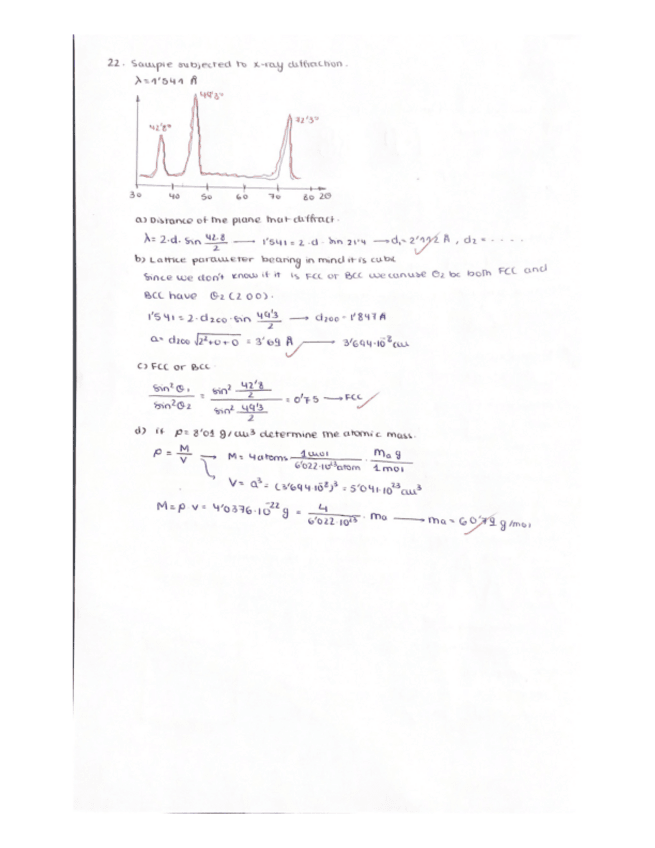 22. Sample subjected to x-ray diffraction.
λ=1'541 Å
49'3°
42'8°
72'3°
30 40 50 60 70 80 2θ
a) Distance of the plane that diffract.
λ= 2·d· sin 42.8/2 → 1'541 = 2·d· sin 21'4 → d₁= 2'112 Å , d₂ = ....
b) Lattice parameter bearing in mind it is cubic
Since we don't know if it is FCC or BCC we can use θ₂ bc both FCC and
BCC have θ₂ (200).
1'541 = 2·d₂₀₀·sin 49'3/2 → d₂₀₀ = 1'847 Å
a= d₂₀₀ √2²+0+0 = 3'69 Å → 3'694·10⁻⁸ cm
c) FCC or BCC
sin²θ₁/sin²θ₂ = sin² 42'8/2 / sin² 49'3/2 = 0'75 → FCC
d) if ρ= 8'01 g/cm³ determine the atomic mass.
ρ = M/V → M= 4 atoms 1 mol/6'022·10²³ atom · ma g/1 mol
V= a³ = (3'694·10⁻⁸)³ = 5'041·10⁻²³ cm³
M=ρ V = 4'0376·10⁻²² g = 4/6'022·10²³ · ma → ma = 60'79 g/mol